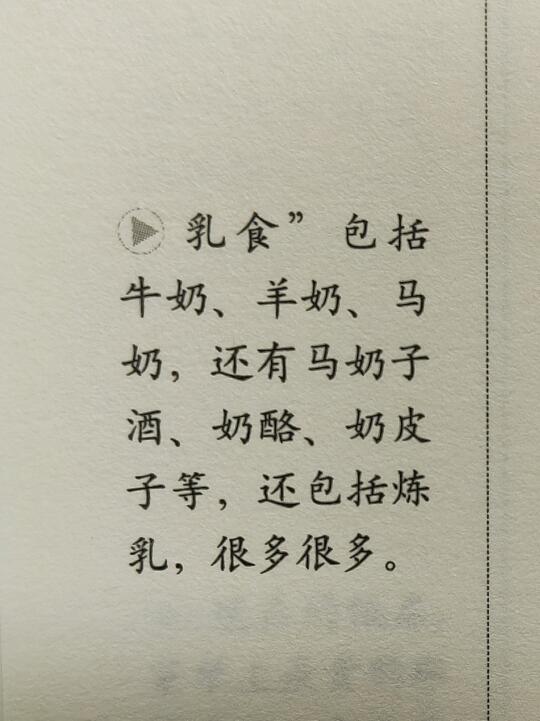 乳食”包括
牛奶、羊奶、马
奶，还有马奶子
酒、奶酪、奶皮
子等，还包括炼
乳，很多很多。